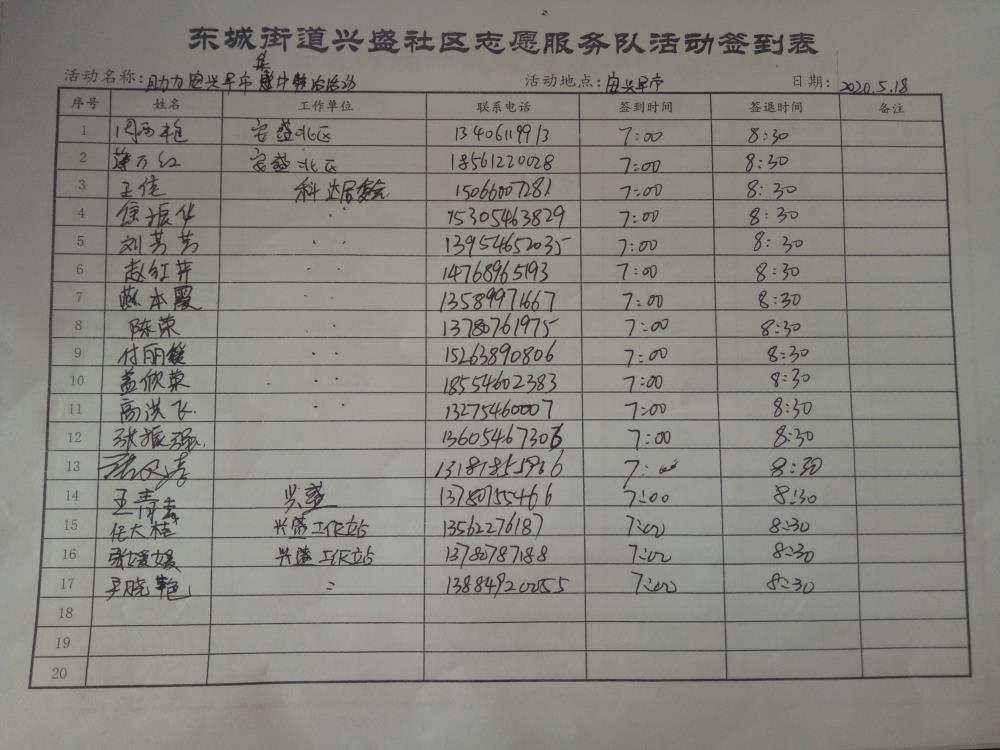 东城街道兴盛社区志愿服务队活动签到表
活动名称: 助力安兴早市集中整治活动 活动地点: 安兴早市 日期: 2020.5.18
序号 姓名 工作单位 联系电话 签到时间 签退时间 备注
1 安盛北区 13406119913 7:00 8:30
2 薄万红 安盛北区 18561220028 7:00 8:30
3 王佳 科达居委会 15066007281 7:00 8:30
4 徐振华 〃 15305463829 7:00 8:30
5 刘芳芳 〃 13954652035 7:00 8:30
6 赵红芹 〃 14768965193 7:00 8:30
7 燕本霞 〃 13589971667 7:00 8:30
8 陈荣 〃 13780761975 7:00 8:30
9 付丽 〃 15263890806 7:00 8:30
10 盖欣荣 〃 18554602383 7:00 8:30
11 高洪飞 〃 13275460007 7:00 8:30
12 张振强 13605467306 7:00 8:30
13 7:00 8:30
14 王青 兴盛 13780755466 7:00 8:30
15 任大桂 兴盛工作站 13562276187 7:00 8:30
16 张媛媛 兴盛工作站 13780787188 7:00 8:30
17 尹晓艳 〃 13884920055 7:00 8:30
18
19
20